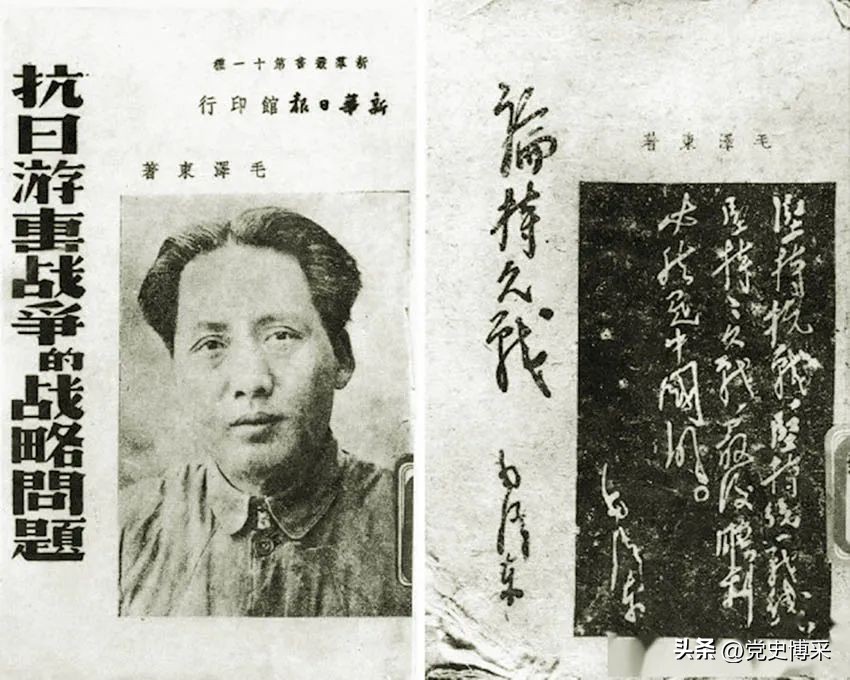 新羣叢書第十一種
新華日報館印行
抗日游击战爭的战略問題
毛澤東著
論持久戰
毛澤東
毛澤東著
堅持抗戰、堅持統一戰綫、
堅持〻久戰、最後勝利
必然是中國的。
毛澤東
头条 @党史博采